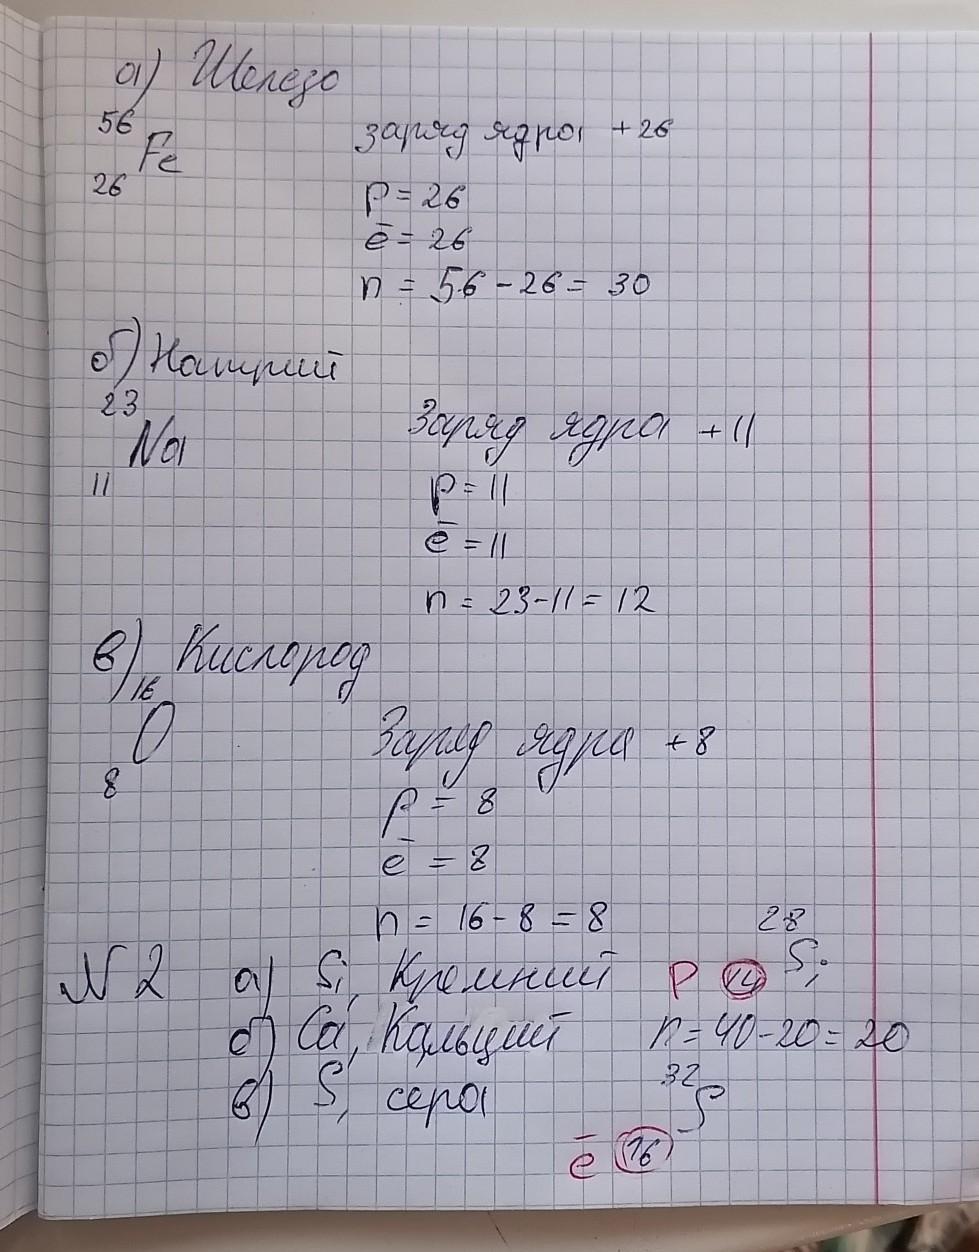 а) Железо
56
Fe заряд ядра +26
26
p = 26
ē = 26
n = 56 - 26 = 30
б) Натрий
23
Na Заряд ядра +11
11
p = 11
ē = 11
n = 23 - 11 = 12
в) Кислород
16
O Заряд ядра +8
8
p = 8
ē = 8
n = 16 - 8 = 8
28
N2 а) Si, Кремний p 14 Si
б) Ca, Кальций n = 40 - 20 = 20
32
в) S, сера S
ē 16